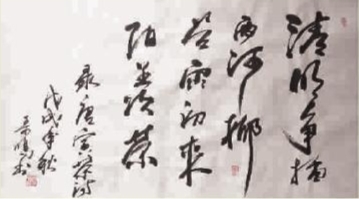 清明争插
西河柳
谷雨初来
阳羡茶
录唐寅茶诗
戊戌年秋